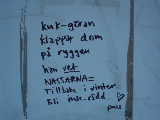 kuk-göran
klappar dom
på ryggen
han vet
NASTARNA=
Tillbaks i vinter
Bli inte rädd
puss